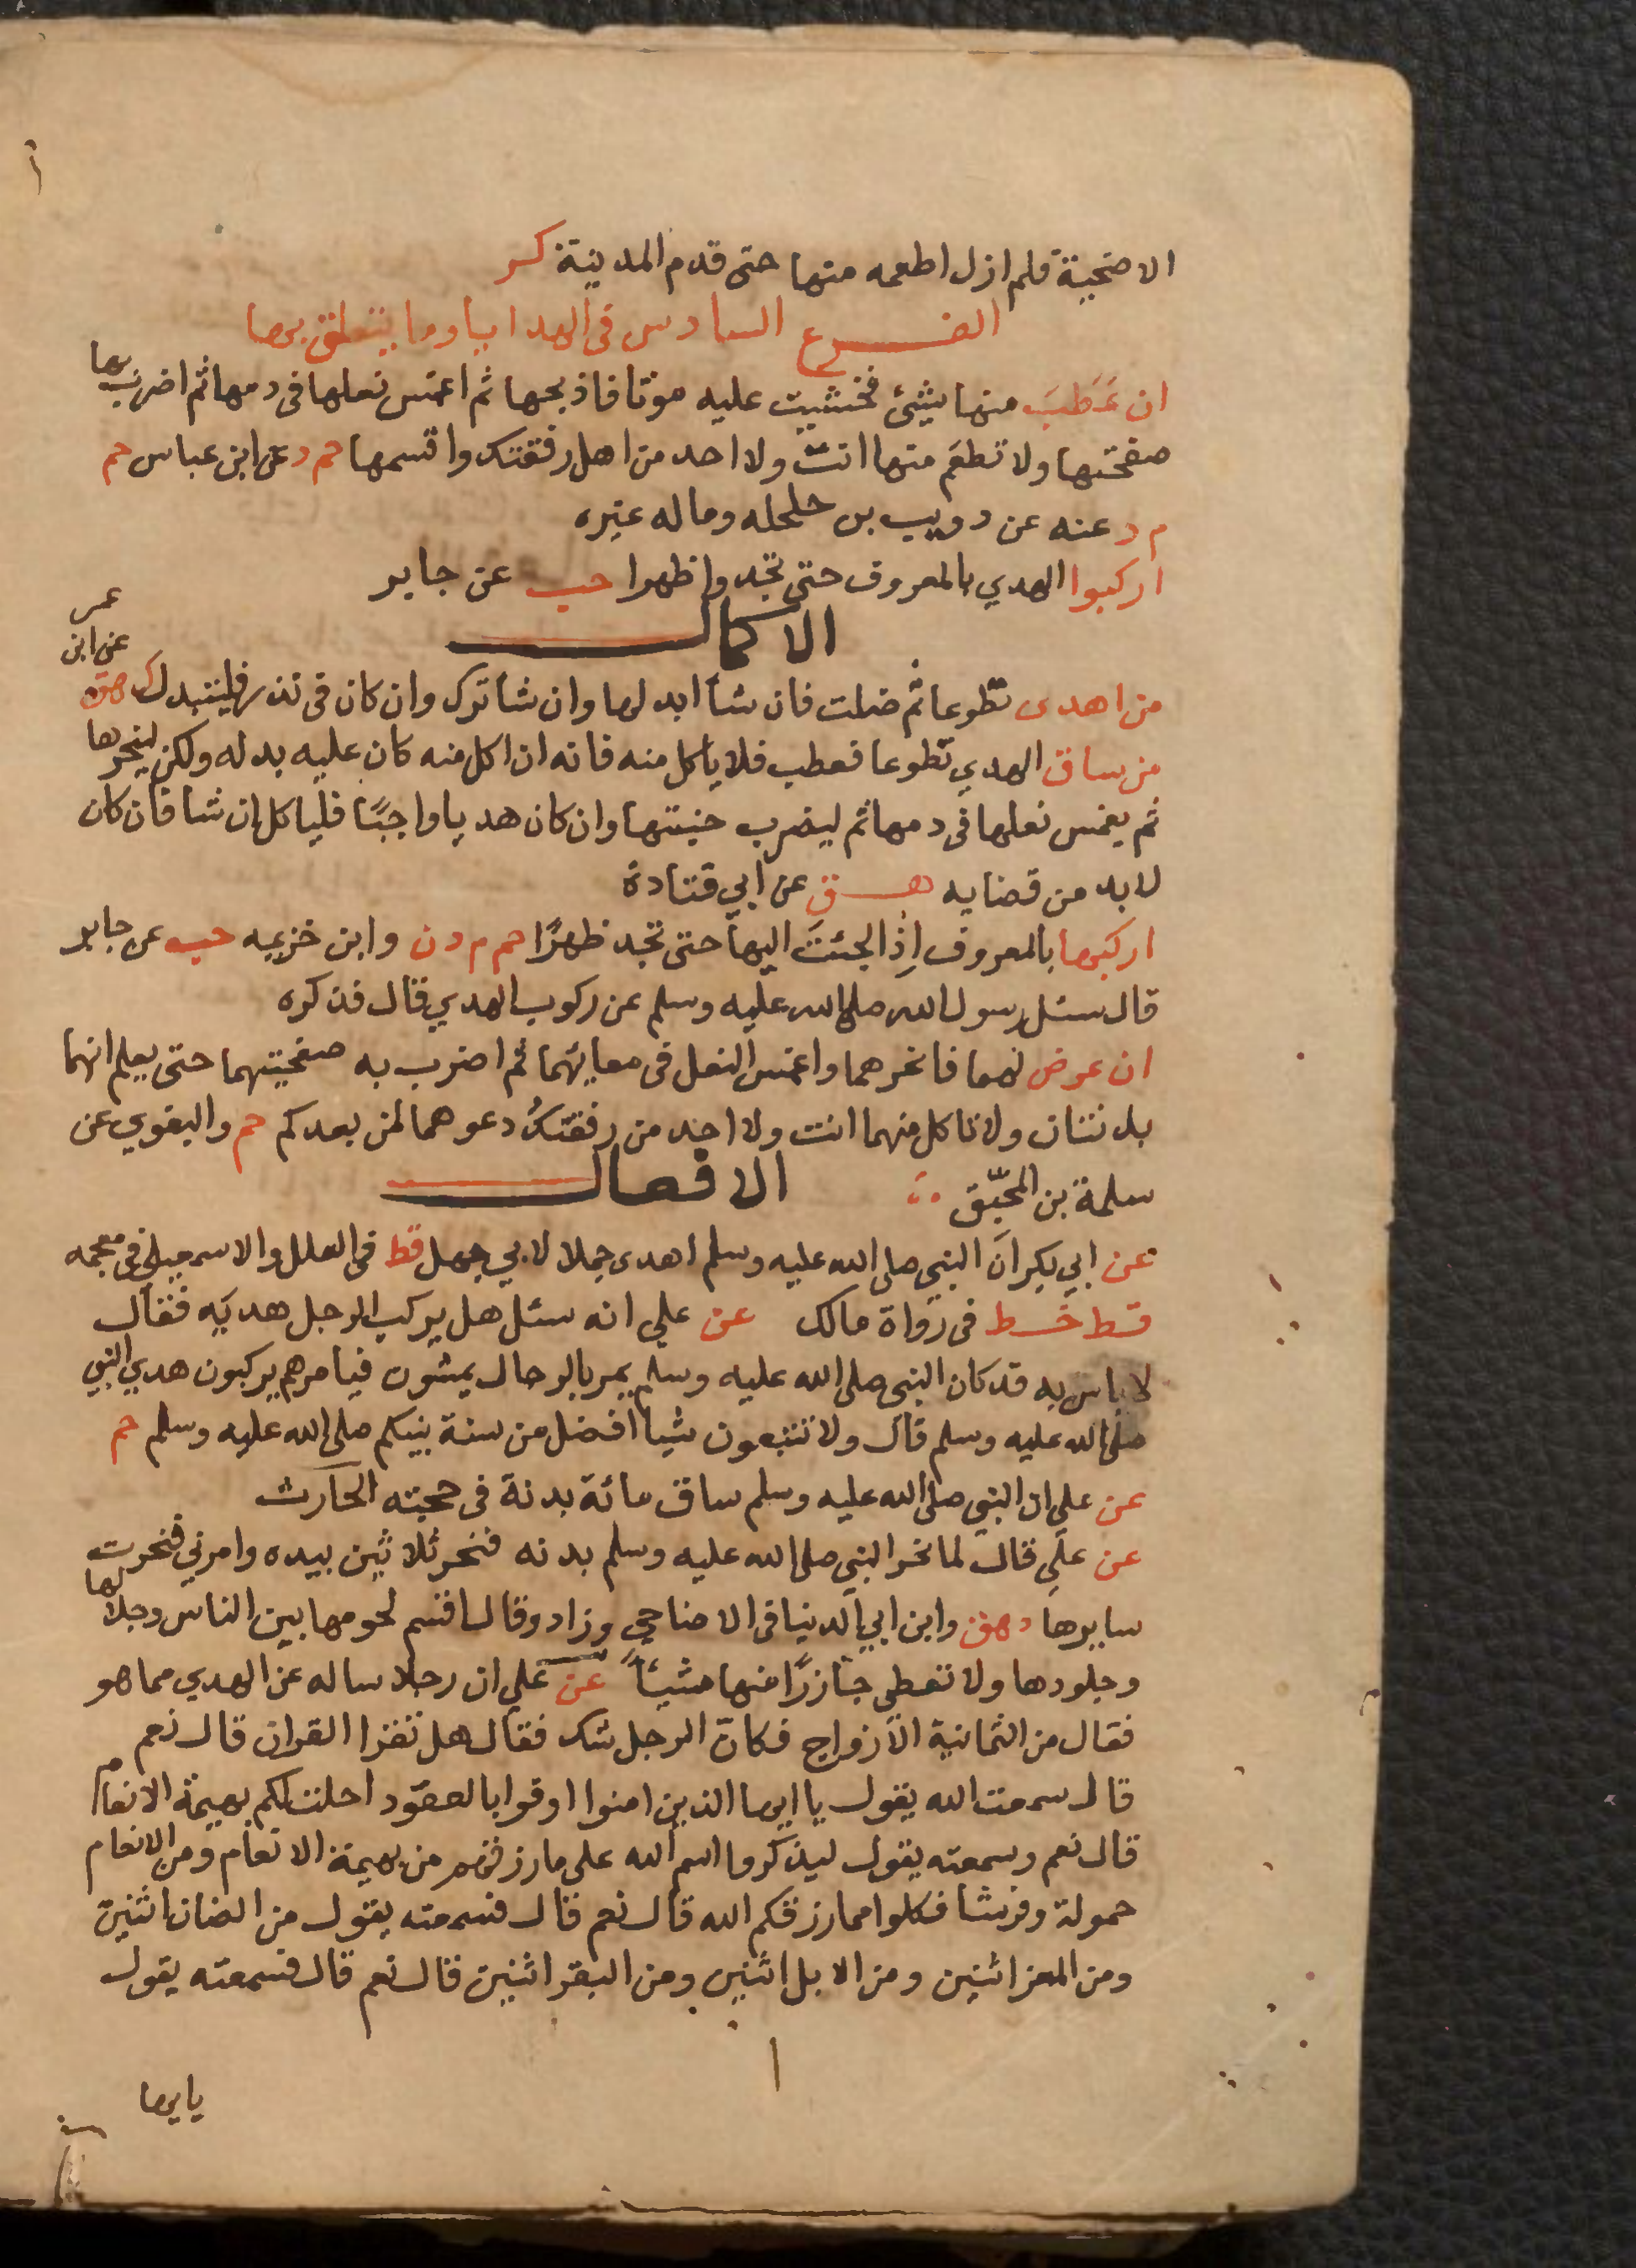 الاضحية فلم ازل اطعمه منها حتى قدم المدينة كر
الفرع السادس في الهدايا وما يتعلق بها
ان عَطَبَ منها شيئ فخشيت عليه موتا فاذبحها ثم اغمس نعلها في دمها ثم اضرب بها
صفحتها ولا تطعَم منها انت ولا احد من اهل رفقتك واقسمها حم د عن ابن عباس حم
م د عنه عن دويب بن حلحله وماله غيره
اركبوا الهدي بالمعروف حتى تجدوا ظهرا حب عن جابر
الاكمال
من اهدى تطوعا ثم ضلت فان شاا ابدلها وان شا ترك وان كان في نذر فليتبدل ك هق عن ابن عمر
من ساق الهدي تطوعا فعطب فلا ياكل منه فانه ان اكل منه كان عليه بدله ولكن لينحرها
ثم يغمس نعلها في دمها ثم ليضرب جنبتها وان كان هديا واجبًا فلياكل ان شا فان كان
لا بد من قضايه هق عن ابي قتادة
اركبها بالمعروف اِذا الجئتَ اليها حتى تجد ظهرًا حم م د ن وابن خزيمه حب عن جابر
قال سئل رسول الله صلى الله عليه وسلم عن ركوب الهدي قال فذكره
ان عرض لهما فانحرهما واغمس النعل في معايهما ثم اضرب به صفحتيهما حتى يعلم انهما
بدنتان ولا تاكل منهما انت ولا احد من رفقتك ودعوهما لمن بعدكم حم والبغوي عن
سلمة بن المحبّق الافعال
عن ابي بكر ان النبي صلى الله عليه وسلم اهدى جملا لابي جهل قط في العلل والاسمعيلي في معجمه
قط خط في رواة مالك عن علي انه سئل هل يركب الرجل هديه فقال
لا باس به قد كان النبي صلى الله عليه وسلم يمر بالرجال يمشون فيامرهم يركبون هدي النبي
صلى الله عليه وسلم قال ولا تتبعون شيا افضل من سنة نبيكم صلى الله عليه وسلم حم
عن علي ان النبي صلى الله عليه وسلم ساق مائة بدنة في حجته الحارث
عن علي قال لما نحر النبي صلى الله عليه وسلم بدنه فنحر ثلاثين بيده وامرني فنحرت
سايرها د هق وابن ابي الدنيا في الاضاحي وزاد وقال اقسم لحومها بين الناس وجلالها
وجلودها ولا تعطي جازرًا منها شيئاً عن علي ان رجلا ساله عن الهدي مما هو
فقال من الثمانية الازواج فكانّ الرجل شك فقال هل تقرا القران قال نعم
قال سمعت الله يقول يا ايها الذين امنوا اوفوا بالعقود احلت لكم بهيمة الانعام
قال نعم وسمعته يقول ليذكروا اسم الله على ما رزقهم من بهيمة الانعام ومن الانعام
حمولة وفرشا فكلوا مما رزقكم الله قال نعم قال فسمعته يقول من الضان اثنين
ومن المعز اثنين ومن الابل اثنين ومن البقر اثنين قال نعم قال فسمعته يقول
يايها